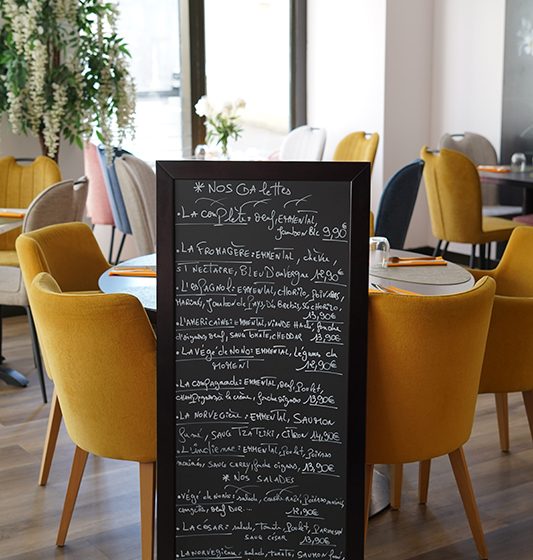 * NOS GALettes
• LA COMPLÈTE: Oeuf, EMMENTAL,
Jambon 9,90€
• LA FROMAGÈRE: EMMENTAL, chèvre,
ST NECTAIRE, BLEU D'AUVERGNE 12,90€
• L'ESPAGNOL: EMMENTAL, CHORIZO, POIVRONS
MARINÉS, Jambon de Pays,
13,90€
• L'AMERICAINE: EMMENTAL, VIANDE HACH,
d'oignons, Oeuf, SAUCE TOMATE, CHEDDAR 13,90€
• LA VÉGÉ DE NONO: EMMENTAL, Légumes du
MOMENT 11,90€
• LA Compagnarde: EMMENTAL, Oeuf, Poulet,
Champignons à la crème, fuche oignons 13,90€
• LA NORVEGIÈNE: EMMENTAL, SAUMON
fumé, SAUCE TZATZIKI, Citron 14,90€
• L'indienne: EMMENTAL, Poulet, Poivrons
marinés, SAUCE CURRY, fuche oignons, 13,90€
* NOS SALADES
• Végé de nono: salade, Poivrons marinés,
Oeuf DUR... 12,90€
• LA CÉSAR: salade, Tomate, Poulet, Parmesan
SAUCE CÉSAR 13,90€
• LA NORVEGIÈNE: salade, tomate, SAUMON fumé